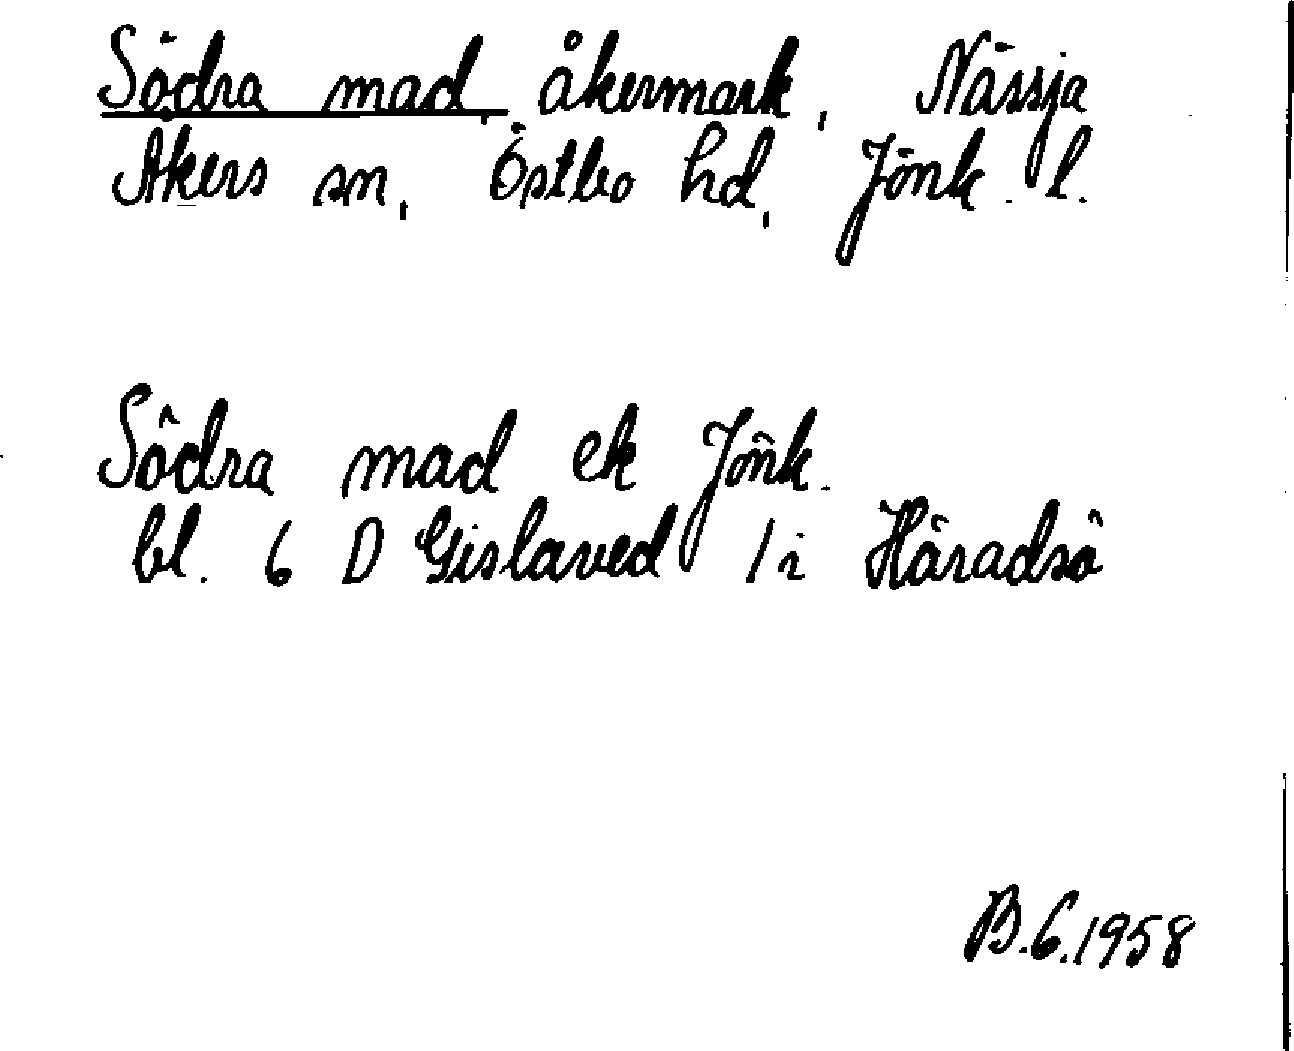 Södra mad, åkermark, Nässja
Åkers sn, Östbo hd, Jönk. l.
Södra mad ek Jönk.
bl. 6 D Gislaved 1i Häradsö
B.G.1958